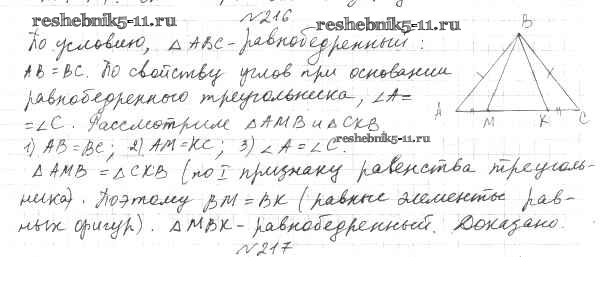 №216
reshebnik5-11.ru
reshebnik5-11.ru
По условию, △ABC - равнобедренный:
AB = BC. По свойству углов при основании
равнобедренного треугольника, ∠A =
= ∠C. Рассмотрим △AMB и △CKB
reshebnik5-11.ru
1) AB = BC; 2) AM = KC; 3) ∠A = ∠C.
△AMB = △CKB (по I признаку равенства треуголь-
ника). Поэтому BM = BK (равные элементы рав-
ных фигур). △MBK - равнобедренный. Доказано.
№217
B
A
M
K
C